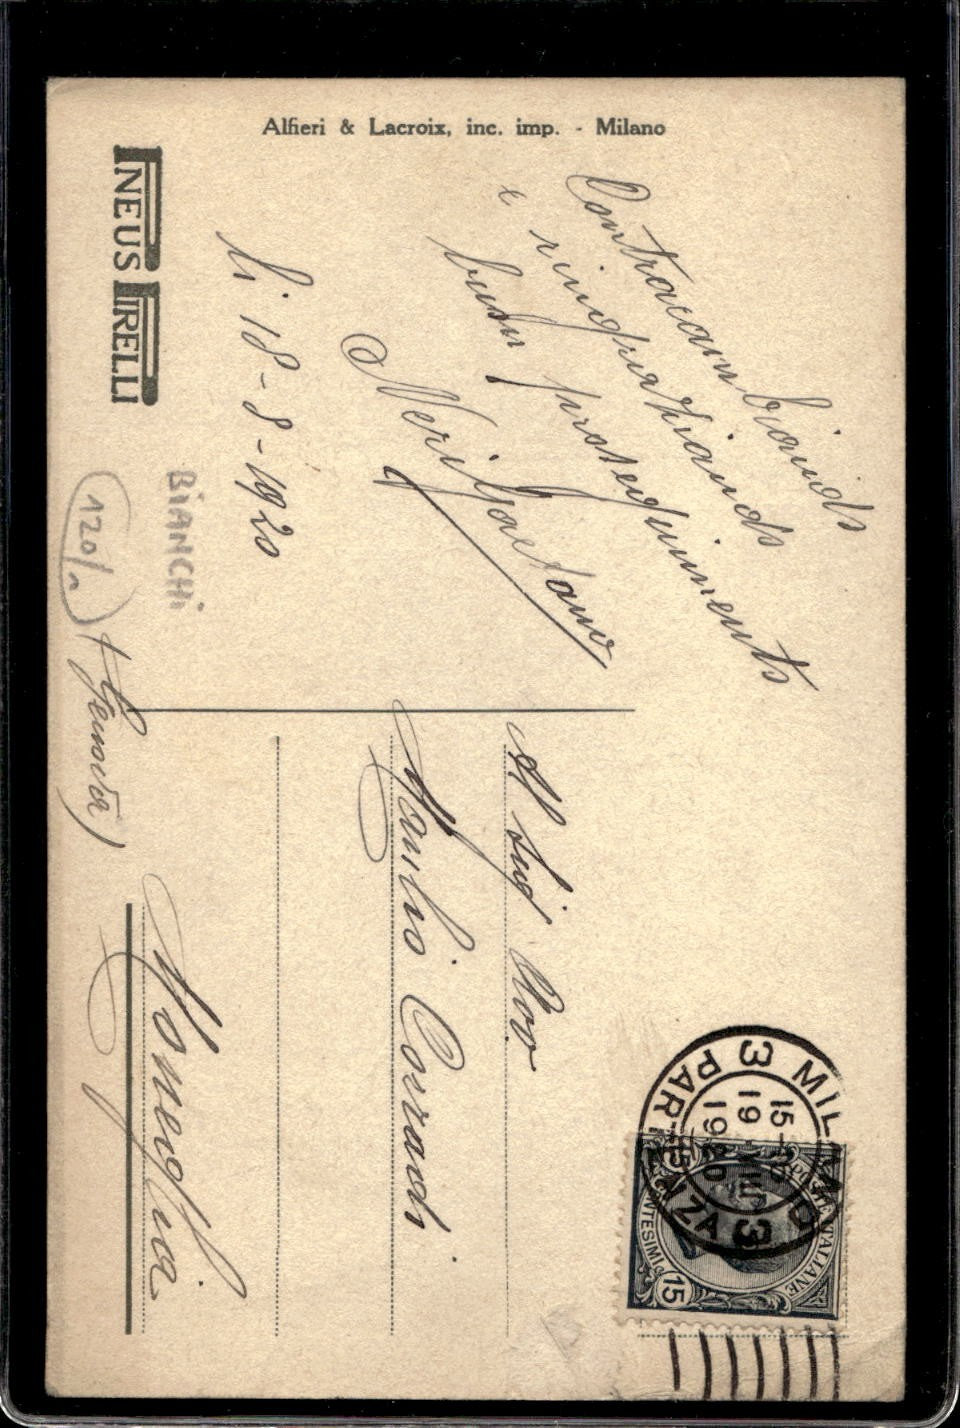 Alfieri & Lacroix, inc. imp. - Milano
PNEUS PIRELLI
Contracambiando
e ringraziando
buon proseguimento
Neri Gaetano
li 18-8-1920
BiANCHi
120/n
Al Sig
Manlio Corradi
Moneglia
(Genova)
MILANO
PARTENZA
3
3
15-16
19 VIII
1920
POSTE ITALIANE
CENTESIMI
15
15